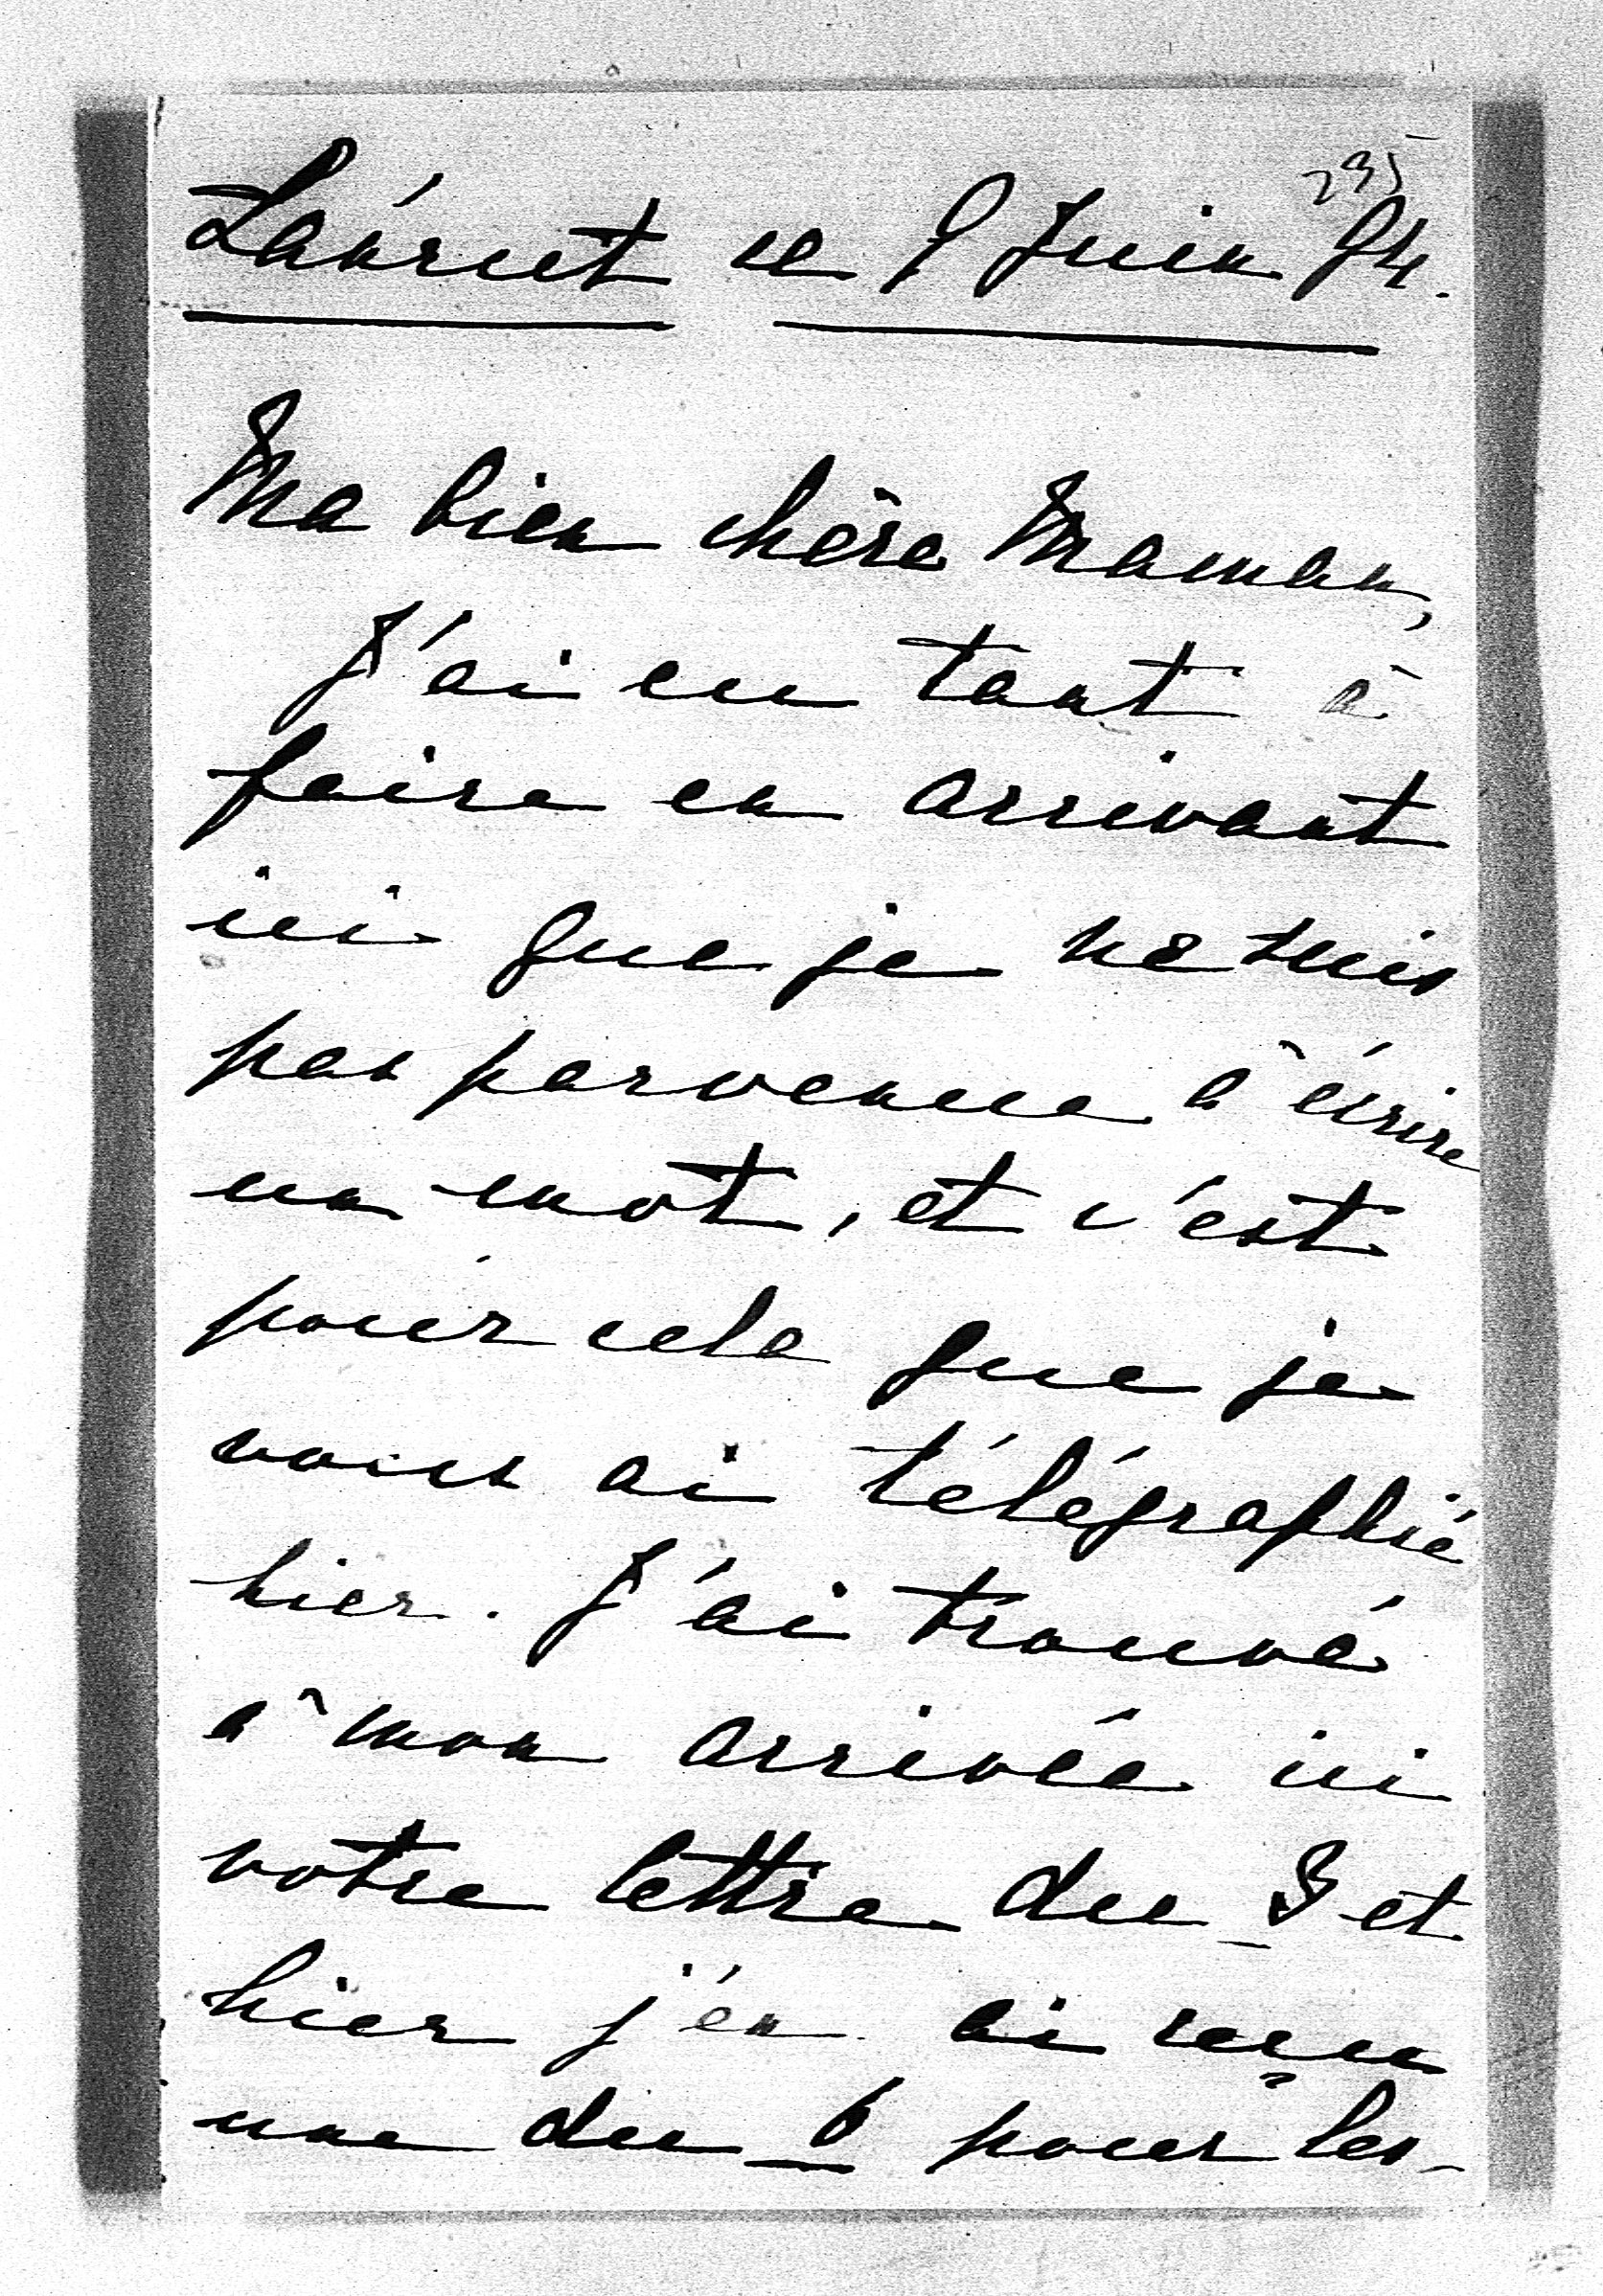 235
Lancut ce 9 Juin 94.
Ma bien chère Maman,
J'ai eu tant à
faire en arrivant
ici que je ne suis
pas parvenue à écrire
un mot, et c'est
pour cela que je
vous ai télégraphié
hier. J'ai trouvé
à mon arrivée ici
votre lettre du 3 et
hier j'en ai reçu
une du 6 pour les-